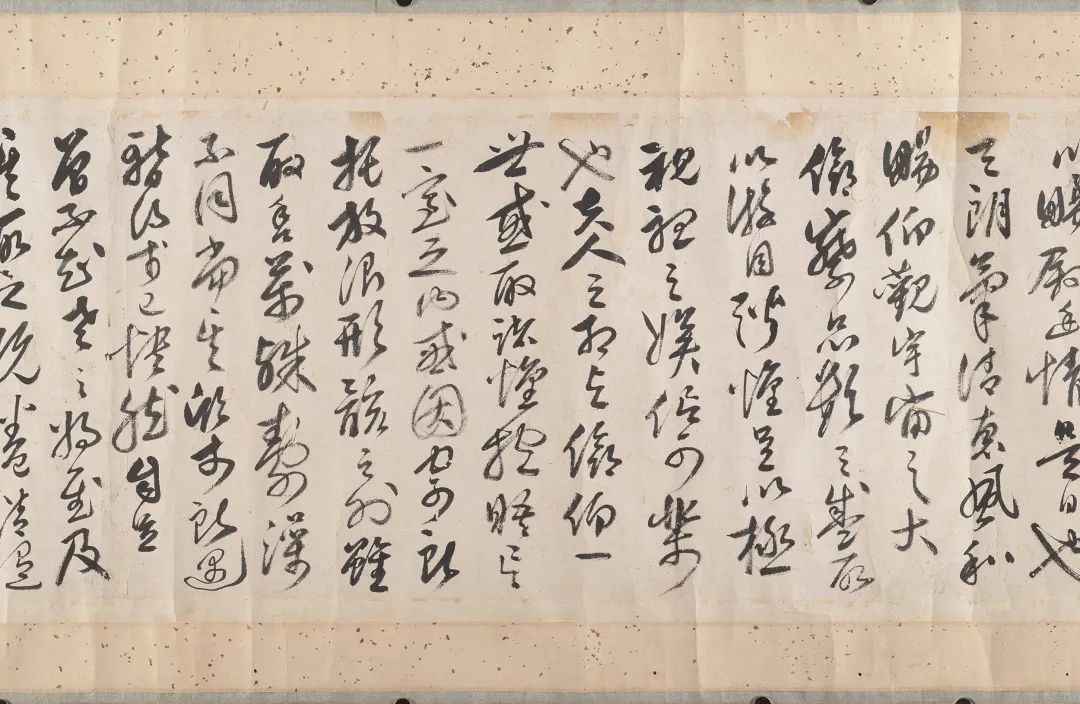 以暢敘幽情是日也
天朗氣清惠風和
暢仰觀宇宙之大
俯察品類之盛所
以游目騁懷足以極
視聽之娛信可樂
也夫人之相與俯仰一
世或取諸懷抱晤言
一室之內或因寄所
托放浪形骸之外雖
取舍萬殊靜躁
不同當其欣於所遇
暫得於己怏然自足
曾不知老之將至及
其所之既惓情隨